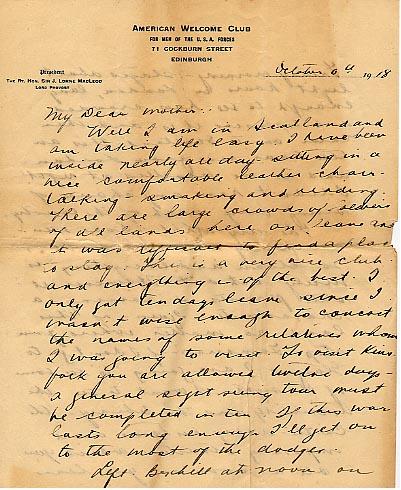 AMERICAN WELCOME CLUB
FOR MEN OF THE U.S.A. FORCES
71 COCKBURN STREET
EDINBURGH
President
THE RT. HON. SIR J. LORNE MACLEOD
LORD PROVOST
October 6th 1918
My Dear Mother:
Well I am in Scotland and
am taking life easy I have been
inside nearly all day sitting in a
nice comfortable leather chair
talking - smoking and reading.
There are large crowds of
of all lands here on leave and
it was difficult to find a place
to stay. This is a very nice club
and everything is of the best. I
only got ten days leave since I
wasn't wise enough to concoct
the names of some relatives whom
I was going to visit. To visit kins
folk you are allowed twelve days -
a general sight seeing tour must
be completed in ten If this war
lasts long enough I'll get on
to the most of the dodges.
Left Bexhill at noon on